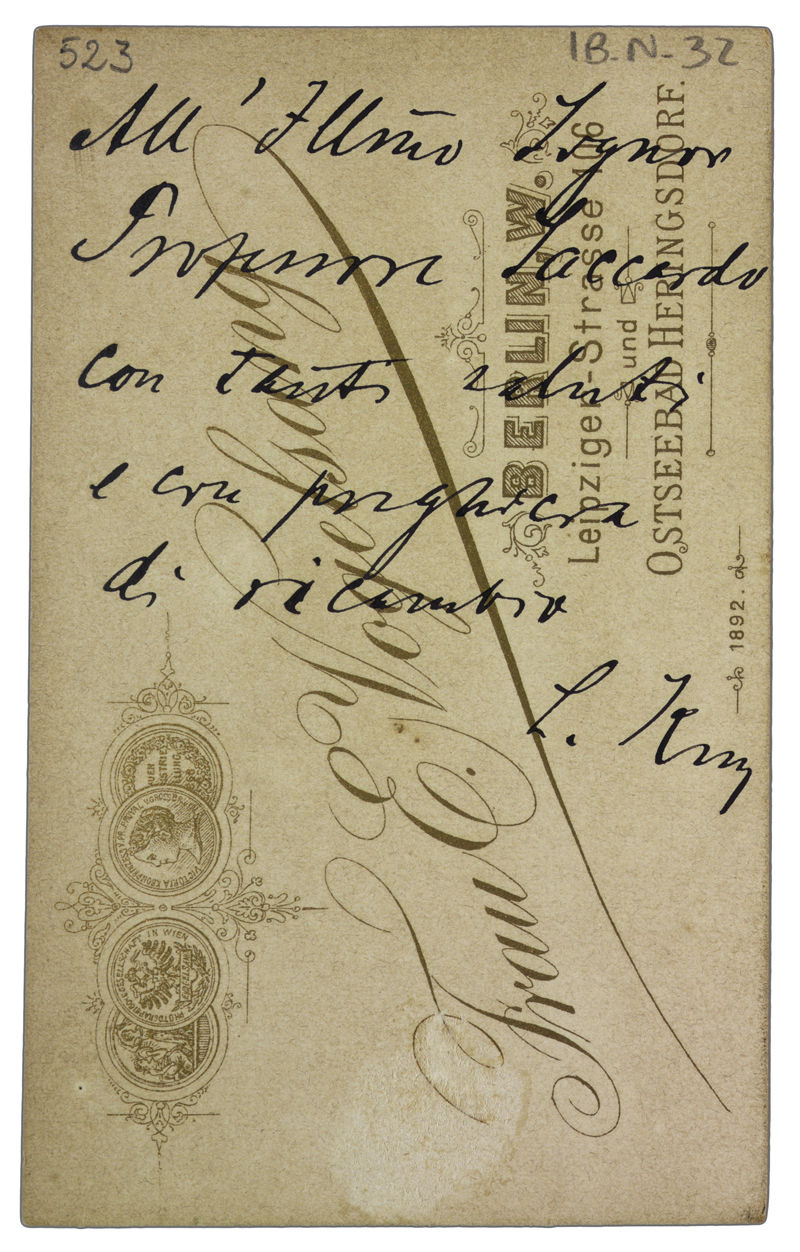 523
IB-N-32
All' Illmo Signor
Professore Saccardo
con tanti saluti
e con preghiera
di ricambio
L. Kny
Frau E. Vogelsang
BERLIN. W.
Leipziger-Strasse 106
und
OSTSEEBAD HERINGSDORF.
1892.
PHOTOGRAPHISCHE GESELLSCHAFT IN WIEN